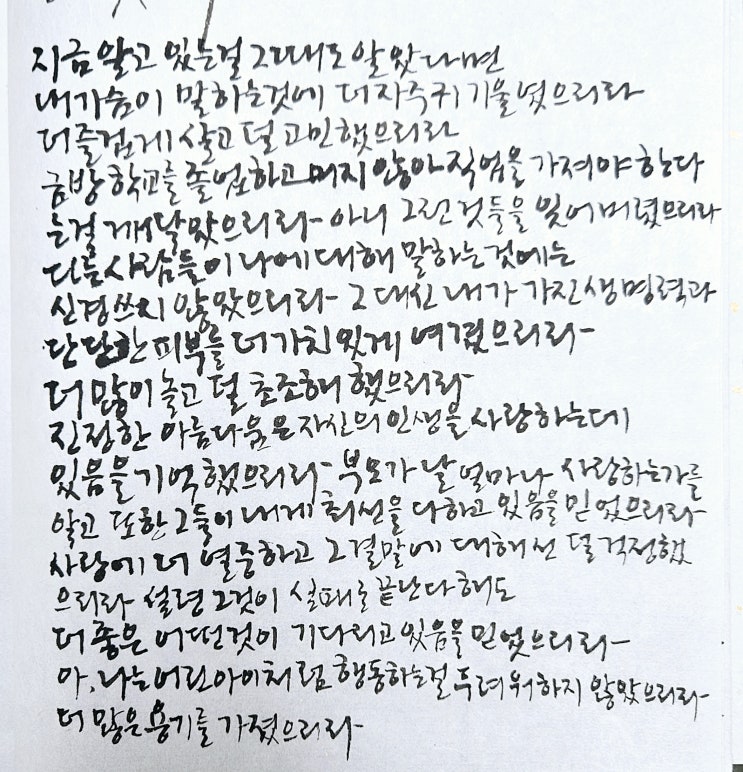 지금 알고 있는걸 그때도 알았다면
내가슴이 말하는것에 더자주귀기울였으리라
더즐겁게 살고 덜 고민했으리라
금방 학교를 졸업하고 머지 않아 직업을 가져야 한다
는걸 깨달았으리라 아니 그런 것들을 잊어버렸으리라
다른사람들이 나에대해 말하는것에는
신경쓰지 않았으리라 그 대신 내가 가진생명력과
단단한 피부를 더가치있게 여겼으리라
더 많이 놀고 덜 초조해 했으리라
진정한 아름다움은 자신의 인생을 사랑하는데
있음을 기억했으리라 부모가 날 얼마나 사랑하는가를
알고 또한 그들이 내게 최선을 다하고 있음을 믿었으리라
사랑에 더 열중하고 그결말에 대해선 덜 걱정했
으리라 설령 그것이 실패로 끝난다 해도
더 좋은 어떤것이 기다리고 있음을 믿었으리라
아, 나는 어린아이처럼 행동하는걸 두려워하지 않았으리라
더 많은 용기를 가졌으리라